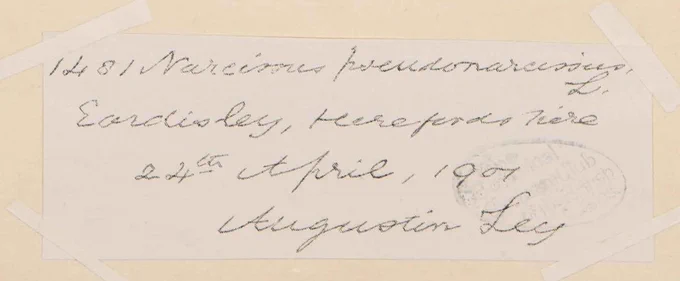 1481 Narcissus pseudonarcissus,
L.
Eardisley, Herefordshire
24th April, 1901
Augustin Ley